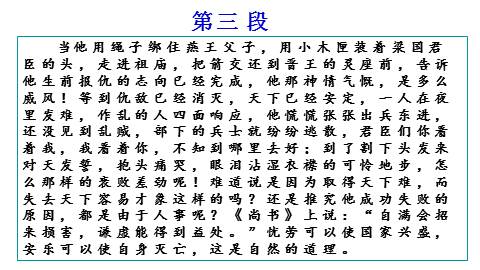 第三段
当他用绳子绑住燕王父子，用小木匣装着梁国君
臣的头，走进祖庙，把箭交还到晋王的灵座前，告诉
他生前报仇的志向已经完成，他那神情气慨，是多么
威风！等到仇敌已经消灭，天下已经安定，一人在夜
里发难，作乱的人四面响应，他慌慌张张出兵东进，
还没见到乱贼，部下的兵士就纷纷逃散，君臣们你看
着我，我看着你，不知到哪里去好；到了割下头发来
对天发誓，抱头痛哭，眼泪沾湿衣襟的可怜地步，怎
么那样的衰败差劲呢！难道说是因为取得天下难，而
失去天下容易才象这样的吗？还是推究他成功失败的
原因，都是由于人事呢？《尚书》上说：“自满会招
来损害，谦虚能得到益处。”忧劳可以使国家兴盛，
安乐可以使自身灭亡，这是自然的道理。